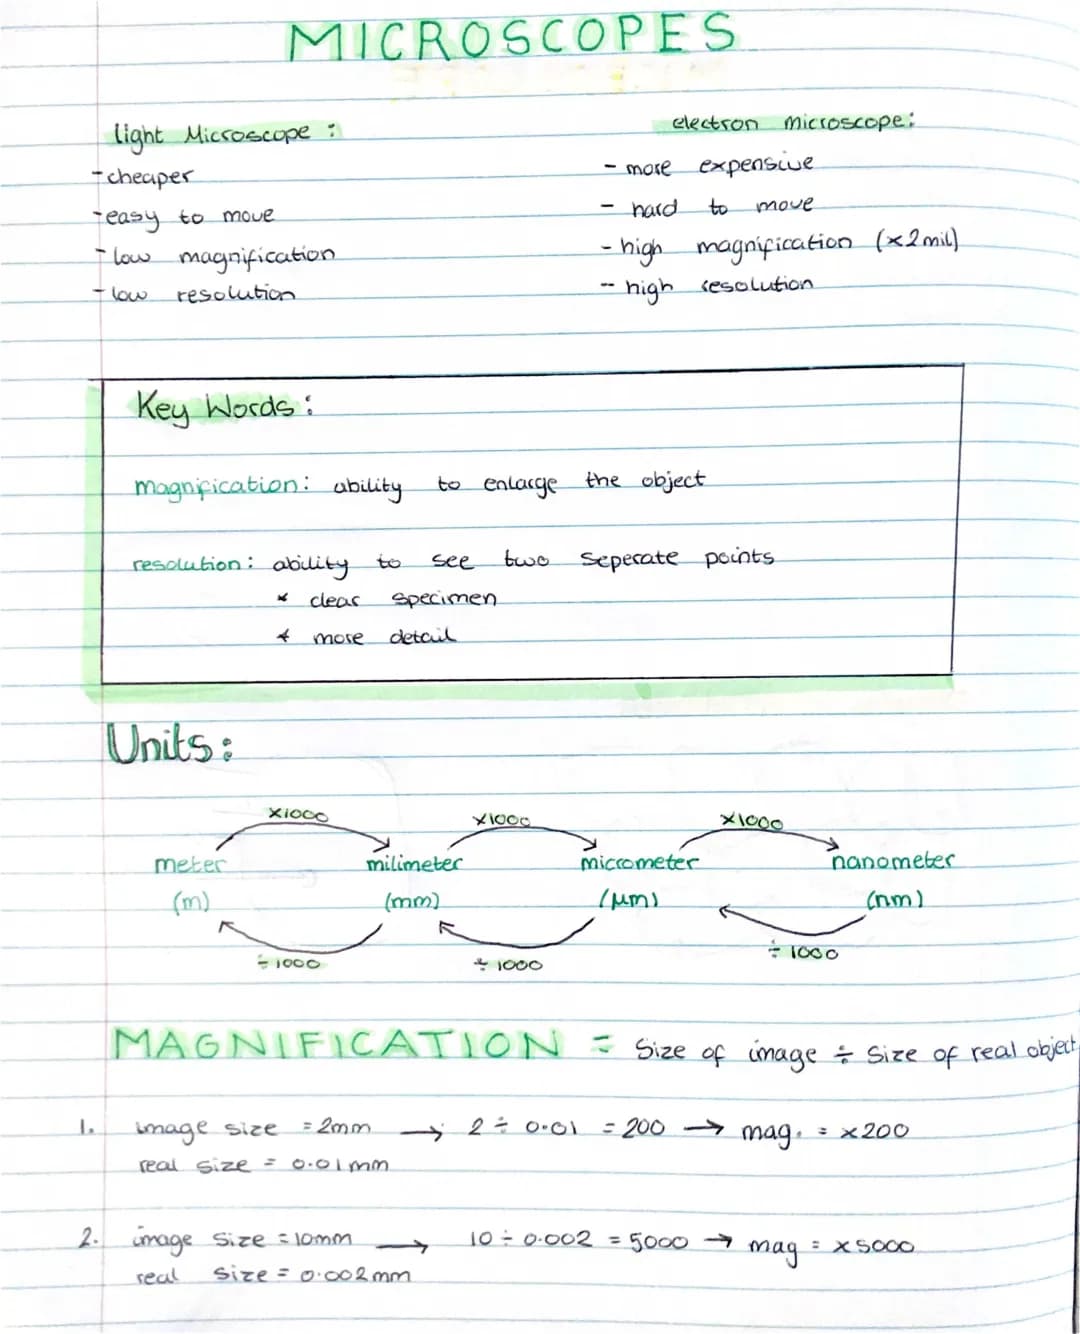 MICROSCOPES
light Microscope :
- cheaper
- easy to move
- low magnification
- low resolution
electron microscope:
- more expensive
- hard to move
- high magnification (x2mil)
- high resolution
Key Words :
magnification: ability to enlarge the object
resolution: ability to see two seperate points
* clear specimen
* more detail
Units :
x1000 x1000 x1000
meter milimeter micrometer nanometer
(m) (mm) (μm) (nm)
÷1000 ÷1000 ÷1000
MAGNIFICATION = Size of image ÷ Size of real object
1. image size = 2mm → 2 ÷ 0.01 = 200 → mag. = x200
real size = 0.01mm
2. image size = 10mm → 10 ÷ 0.002 = 5000 → mag = x5000
real size = 0.002mm